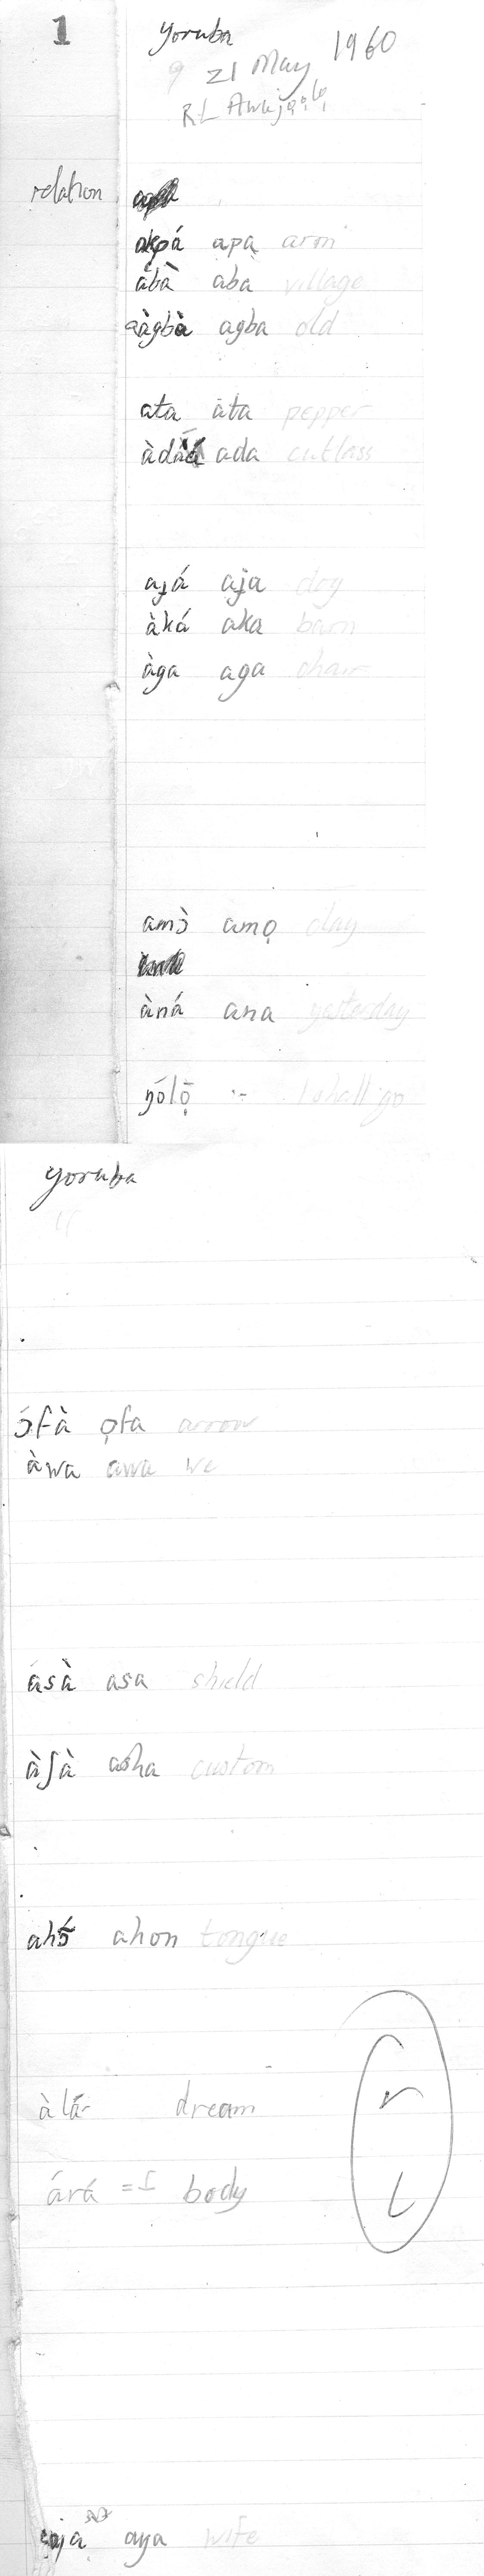 1
Yoruba 1960
9 21 May
RL
relation
akpá apa arm
ábà aba village
àgbà agba old
ata ata pepper
àdá ada cutlass
aɟá aja dog
àká aka barn
àga aga chair
amɔ̀ amọ clay
àná ana yesterday
ŋ́ólɔ̄ :- I shall go
Yoruba
ɔ́fà ọfa arrow
àwa awa we
ásà asa shield
àʃà asha custom
ahɔ̃́ ahon tongue
àlá- dream
r
ára body
L
aja aya wife